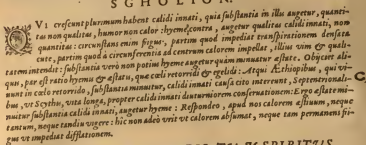 SCHOLION.
VI crescunt plurimum habent calidi innati, quia substantia in illis augetur, quanti-
tas non qualitas, humor non calor hyeme, contra, augetur qualitas calidi innati, non
quantitas: circunstans enim frigus, partim quod impediat transpirationem densata
cute, partim quod à circunferentia ad centrum calorem impellat, illius vim & quali-
tatem intendit: substantia verò non potius hyeme augetur quàm minuatur æstate. Obijciet ali-
quis, par est ratio hyemis & æstatis, quæ cœli retorridi & egelidi: Atqui Æthiopibus, qui vi-
uunt in cœlo retorrido, substantia minuitur, calidi innati causa citò intereunt, Septentrionali-
bus, vt Scythis, vita longa, propter calidi innati diuturniorem conseruationem: Ergo æstate mi-
nuitur substantia calidi innati, augetur hyeme: Respondeo, apud nos calorem æstiuum, neque
tantum, neque tandiu vigere: hic non adeò vrit vt calorem absumat, neque tam permanens fri-
gus vt impediat difflationem.
C
SPIRITVS